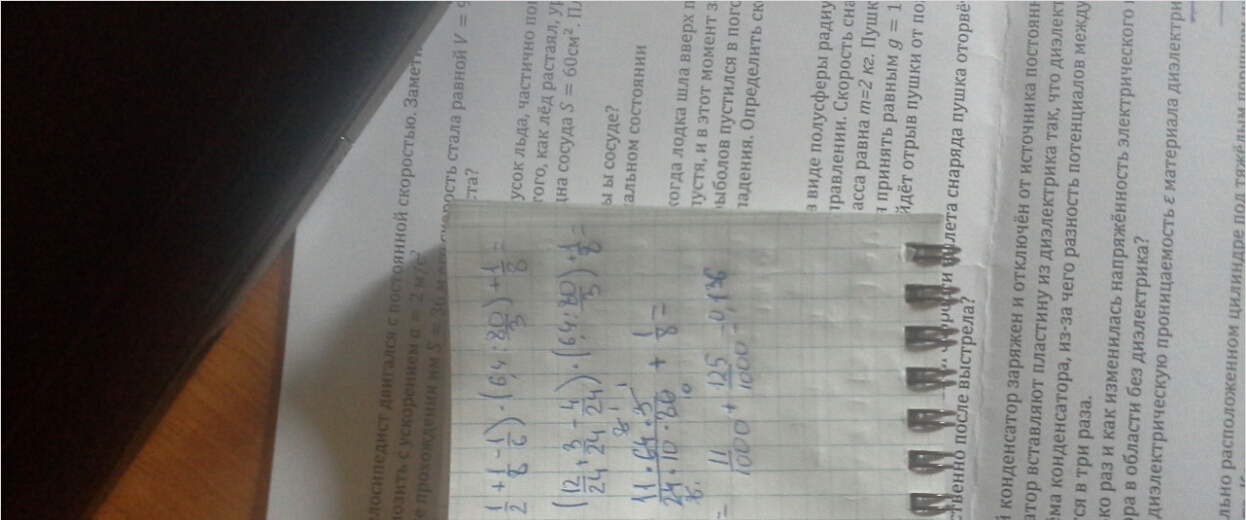 елосипедист двигался с постоянной скоростью. Замет
мозить с ускорением a = 2 м/с²
е прохождении им S = 36 м его скорость стала равной V = 9
ста?
усок льда, частично пог
того, как лёд растаял, ур
дна сосуда S = 60см². Пл
ы сосуде?
альном состоянии
когда лодка шла вверх п
пустя, и в этот момент з
рыболов пустился в пого
падения. Определить ск
в виде полусферы радиу
правлении. Скорость сна
асса равна m=2 кг. Пушк
принять равным g = 1
йдёт отрыв пушки от по
вылета снаряда пушка оторвё
ственно после выстрела?
1/2 + 1/8 - 1/6) · (6,4 : 80/3) + 1/8 =
(12/24 + 3/24 - 4/24) · (6,4 : 80/3) + 1/8 =
11 · 64 · 3 / 24 · 10 · 80 + 1/8 =
= 11/1000 + 125/1000 = 0,136
й конденсатор заряжен и отключён от источника постоянн
атор вставляют пластину из диэлектрика так, что диэлект
ема конденсатора, из-за чего разность потенциалов между
ся в три раза.
ко раз и как изменилась напряжённость электрического п
ора в области без диэлектрика?
диэлектрическую проницаемость ε материала диэлектри
льно расположенном цилиндре под тяжёлым поршнем н